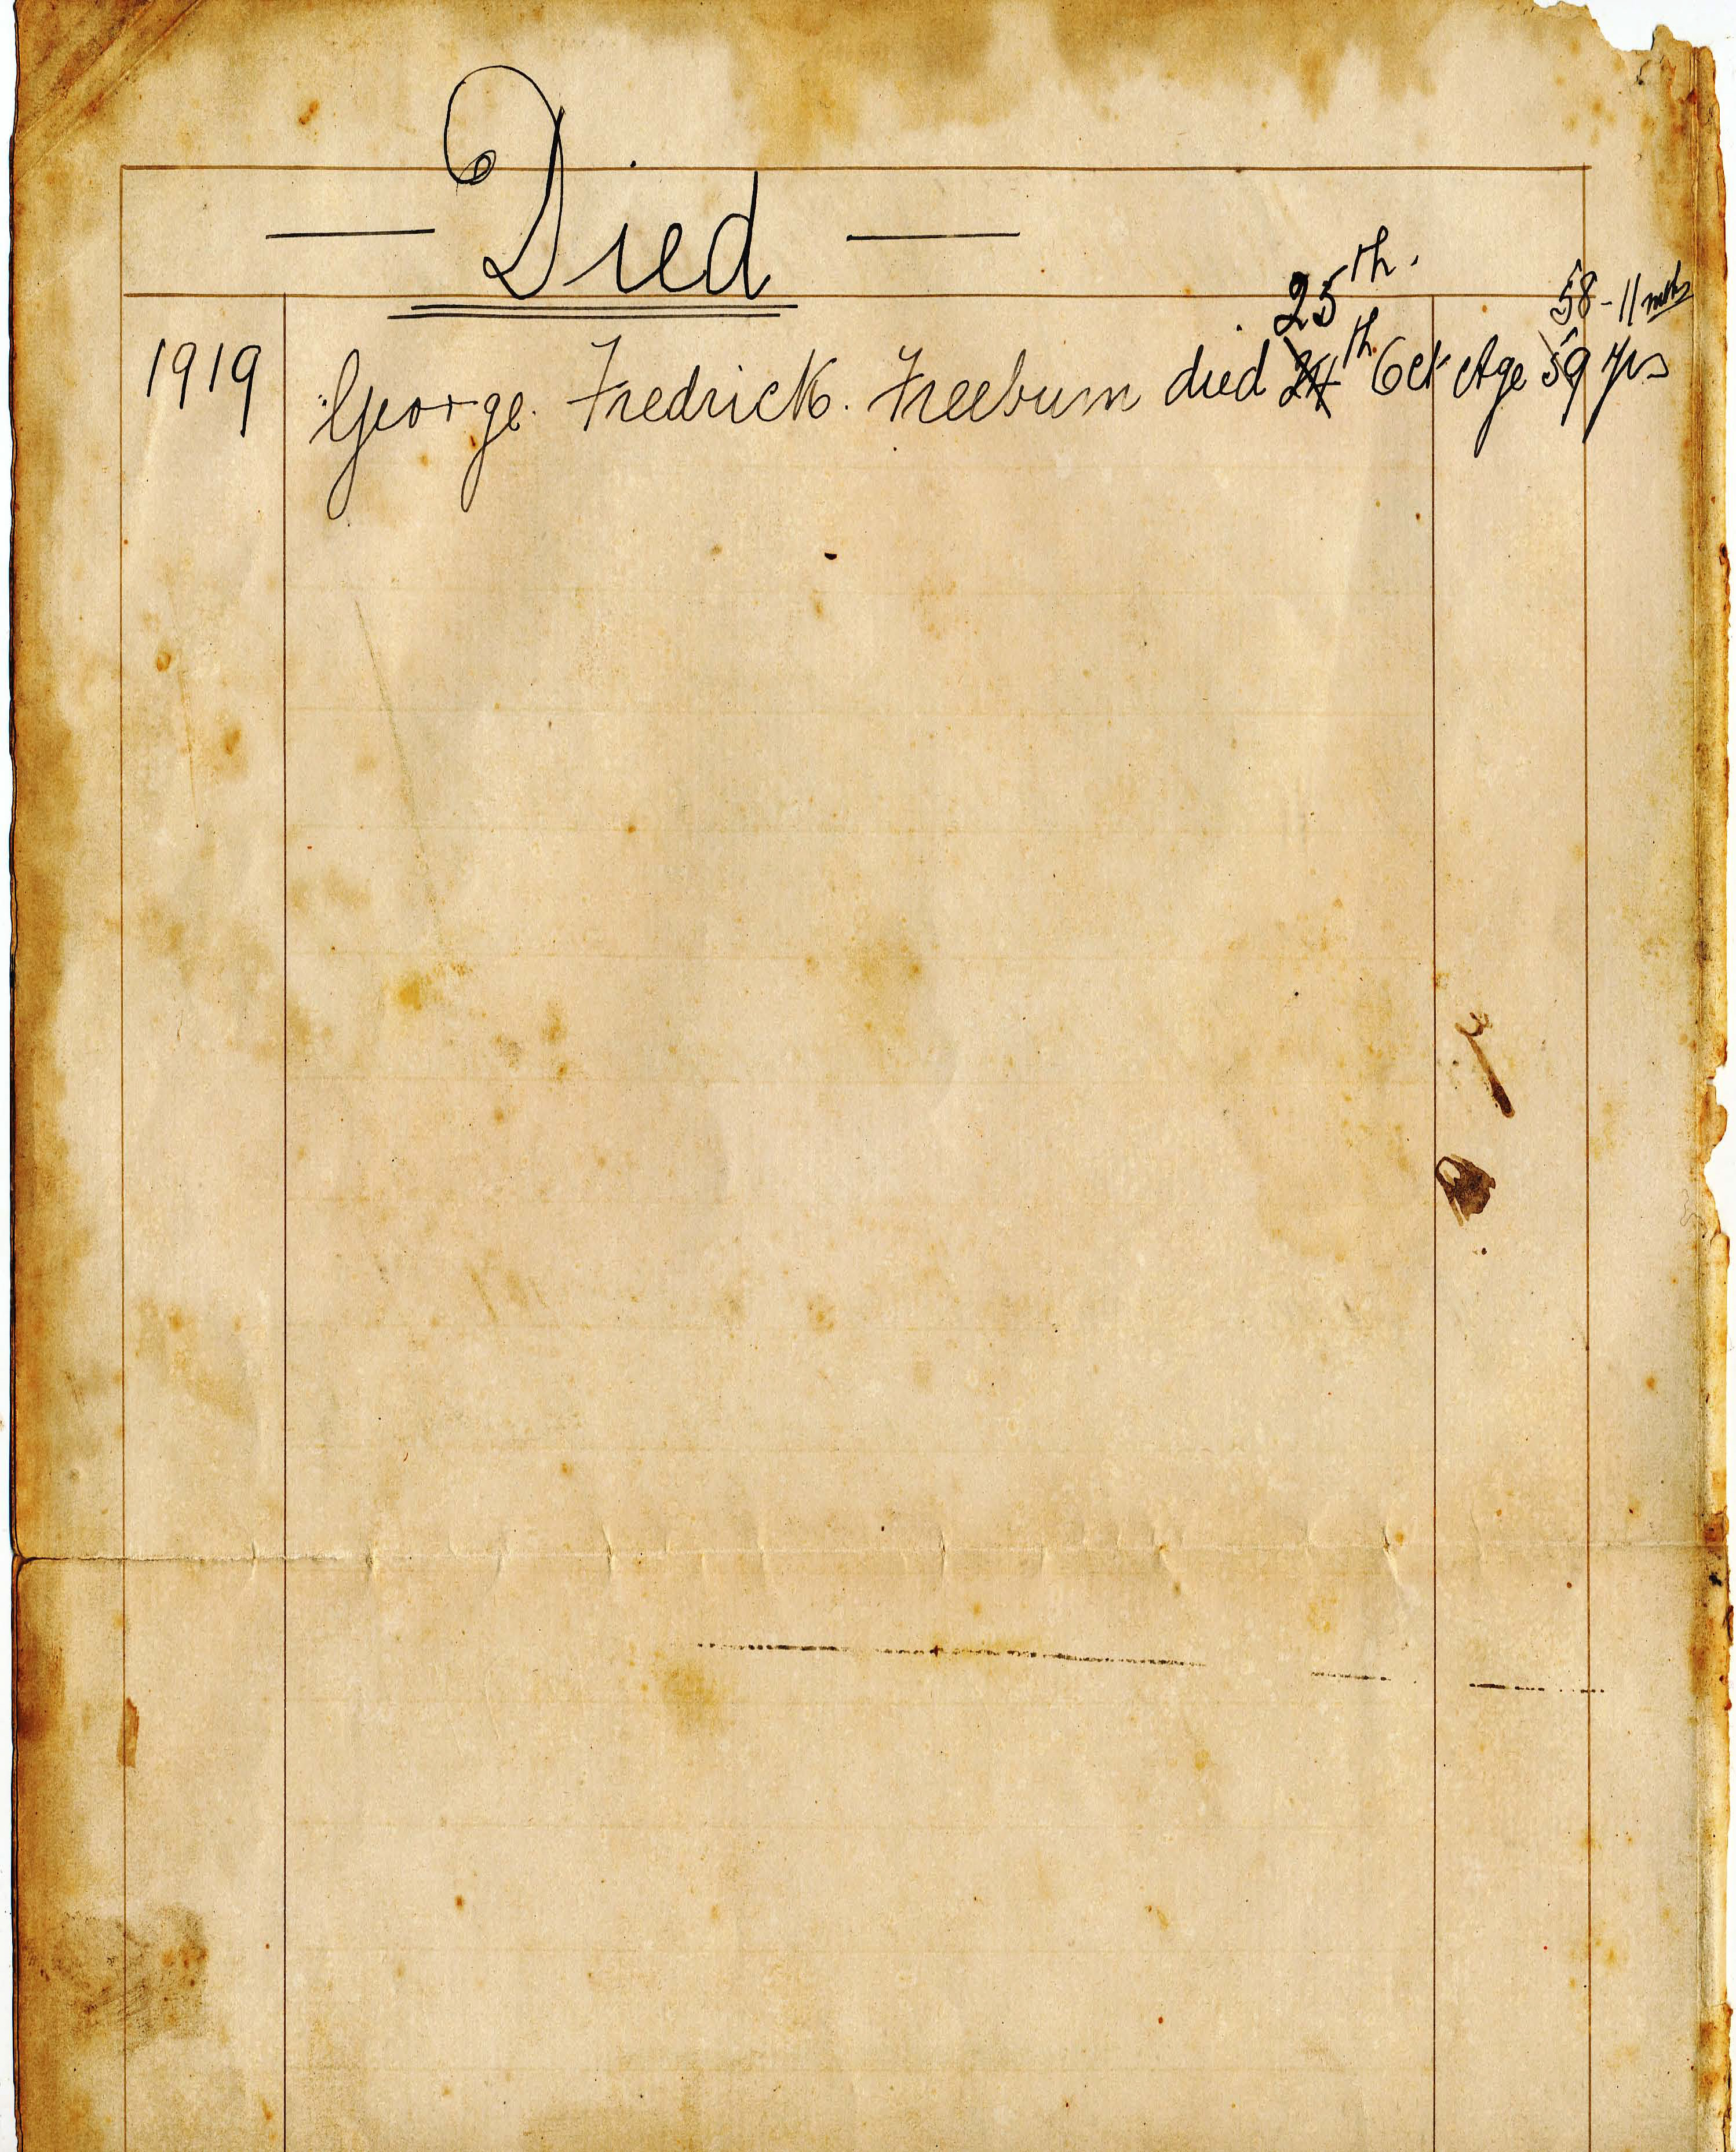 — Died —
25th.
58 - 11 mths
1919 George. Fredrick. Freeburn died 24th Oct Age 59 yrs